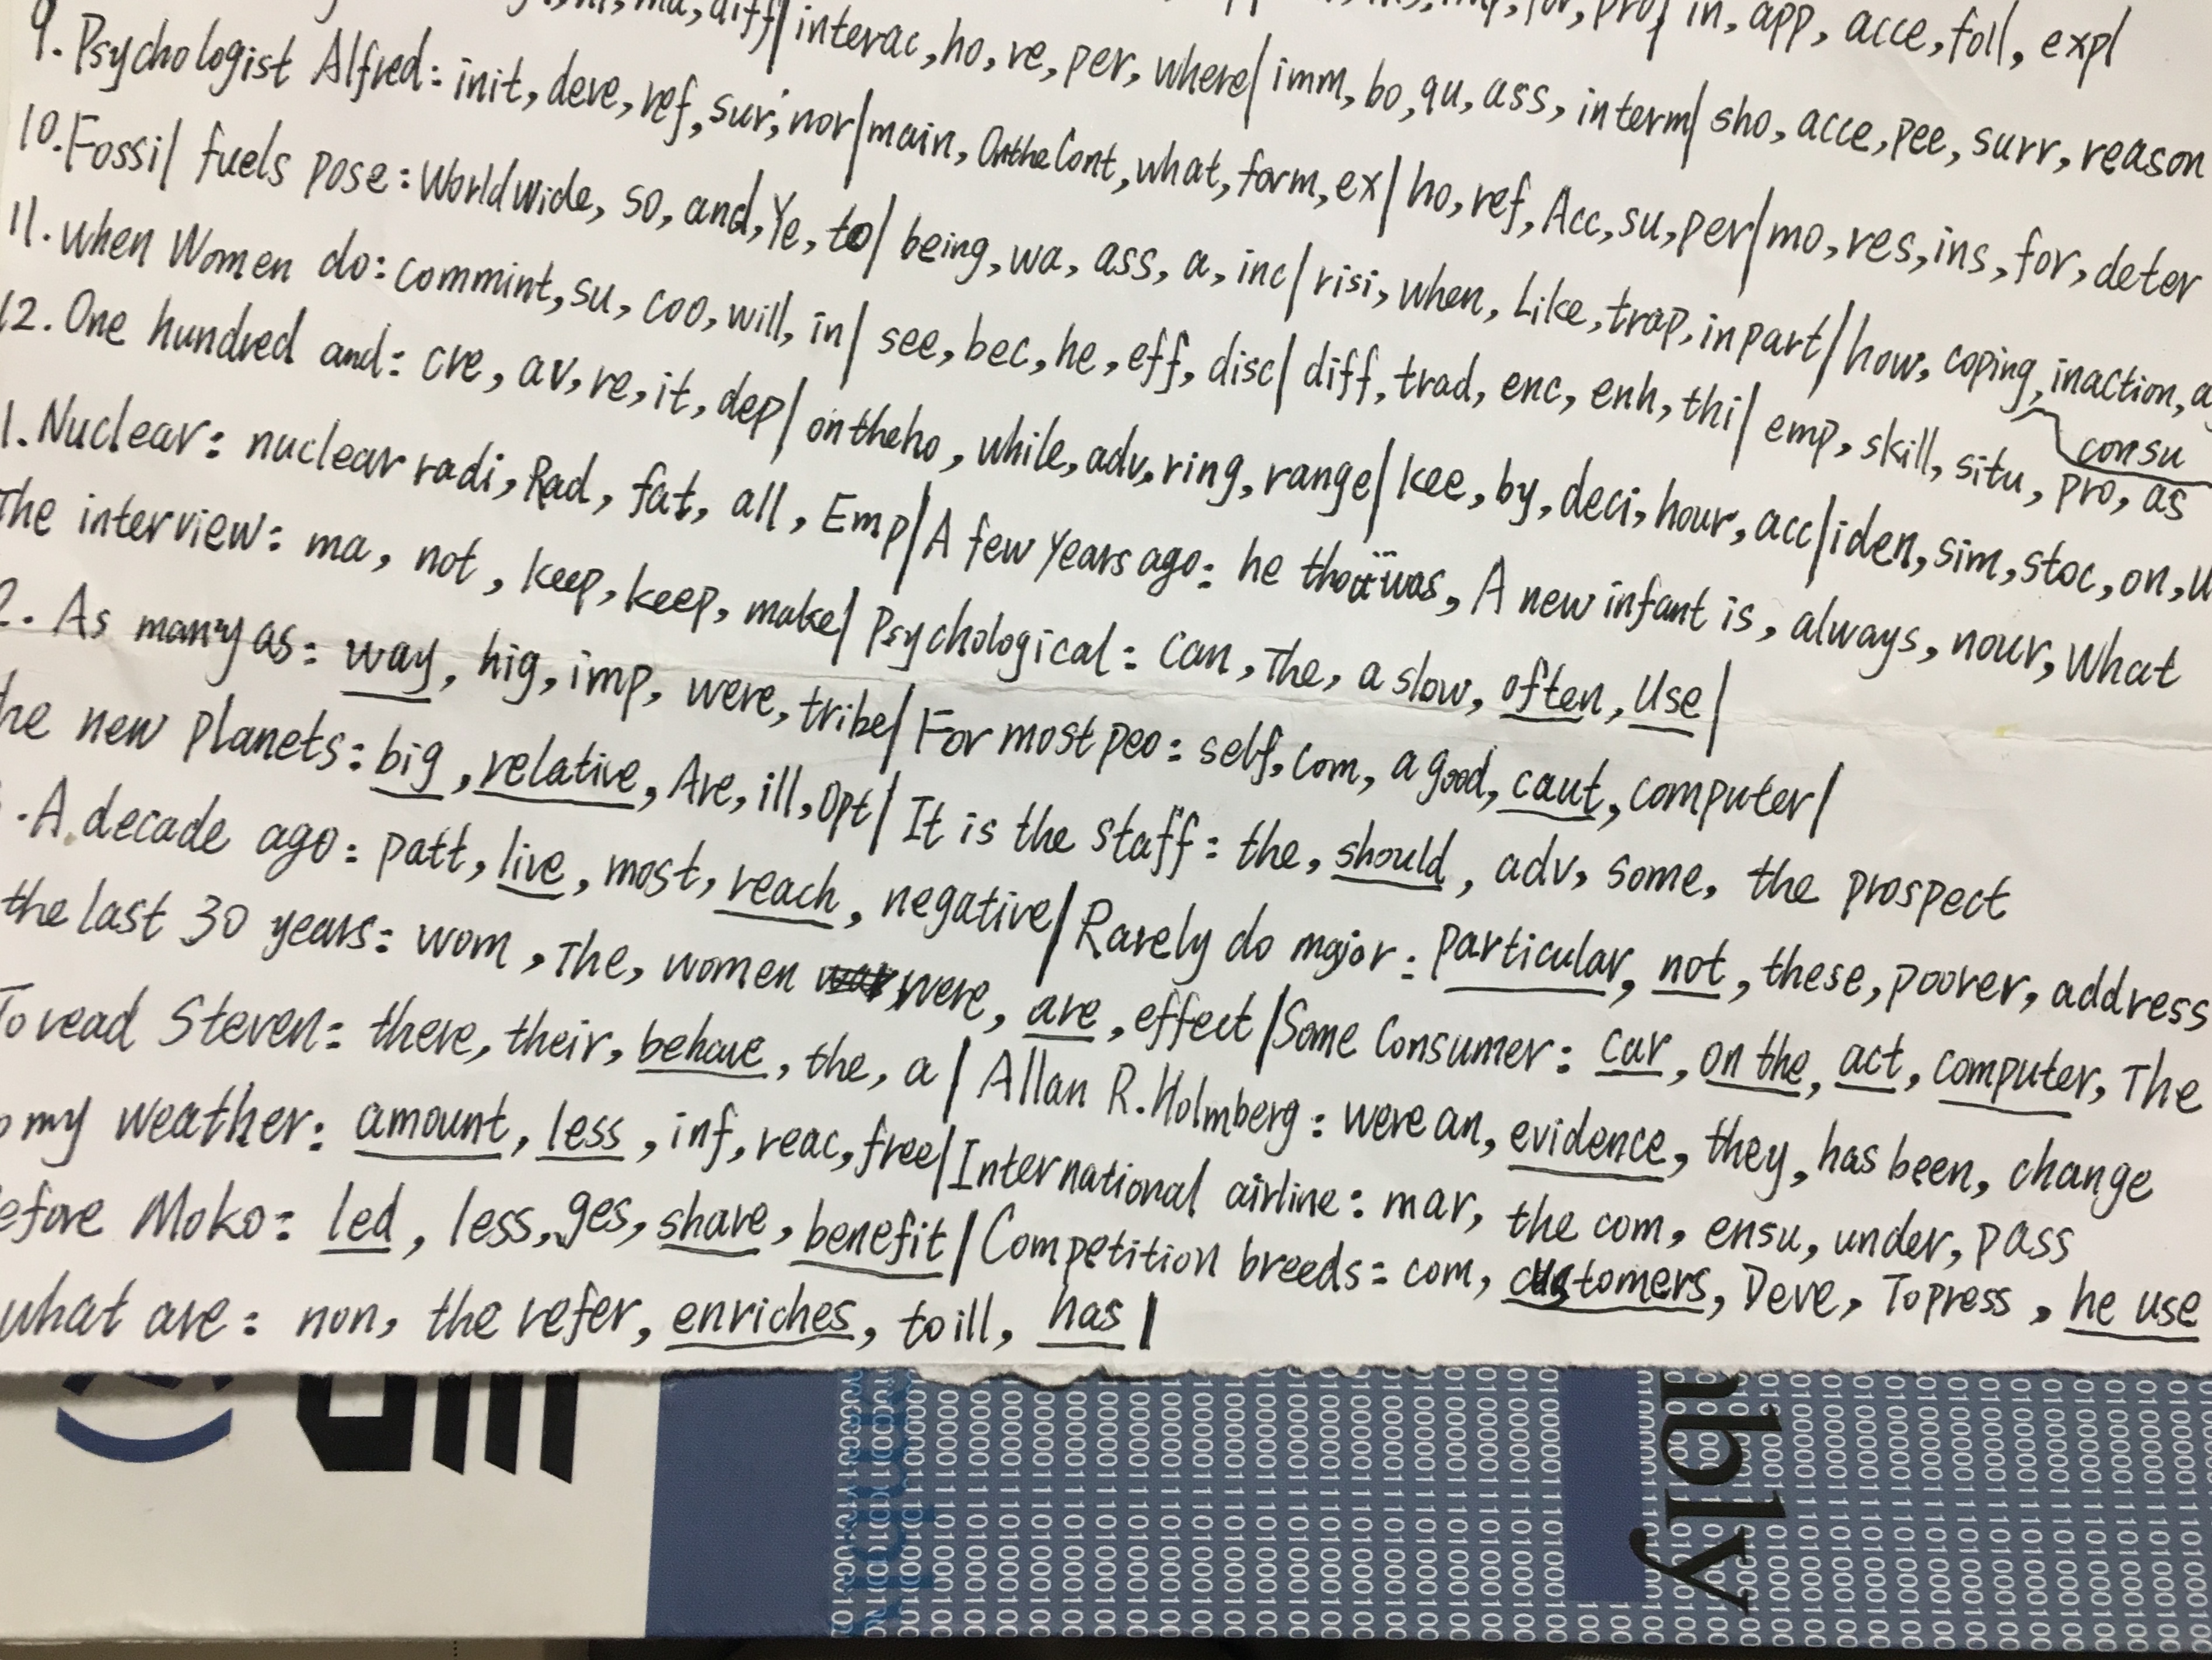 in, app, acce, foll, expl
ma, diff/ interac, ho, re, per, where/ imm, bo, qu, ass, interm/ sho, acce, pee, surr, reason
9. Psychologist Alfred: init, deve, ref, sur, nor/main, Onthe Cont, what, form, ex/ ho, ref, Acc, su, per/mo, res, ins, for, deter
10. Fossil fuels pose: Worldwide, so, and, Ye, to/ being, wa, ass, a, inc/ risi, when, Like, trap, inpart/how, coping, inaction, a
consu
11. when Women do: commint, su, coo, will, in/ see, bec, he, eff, disc/ diff, trad, enc, enh, thi/ emp, skill, situ, pro, as
12. One hundred and: cre, av, re, it, dep/ ontheho, while, adv, ring, range/ kee, by, deci, hour, acc/iden, sim, stoc, on, u
1. Nuclear: nuclear radi, Rad, fat, all, Emp/A few Years ago: he was, A new infant is, always, nour, What
The interview: ma, not, keep, keep, make/ Psychological: can, The, a slow, often, Use/
2. As manyas: way, hig, imp, were, tribe/ For most peo: self, com, a good, caut, computer/
he new Planets: big, relative, Are, ill, Opt/ It is the staff: the, should, adv, some, the prospect
. A decade ago: patt, live, most, reach, negative/ Rarely do major: particular, not, these, poorer, address
the last 30 years: wom, The, women were, are, effect/Some Consumer: car, on the, act, computer, The
To read Steven: there, their, behave, the, a/ Allan R.Holmberg: were an, evidence, they, has been, change
my weather: amount, less, inf, reac, free/International airline: mar, the com, ensu, under, pass
efore Moko: led, less, ges, share, benefit/Competition breeds: com, customers, Deve, Topress, he use
what are: non, the refer, enriches, toill, has/
nbly